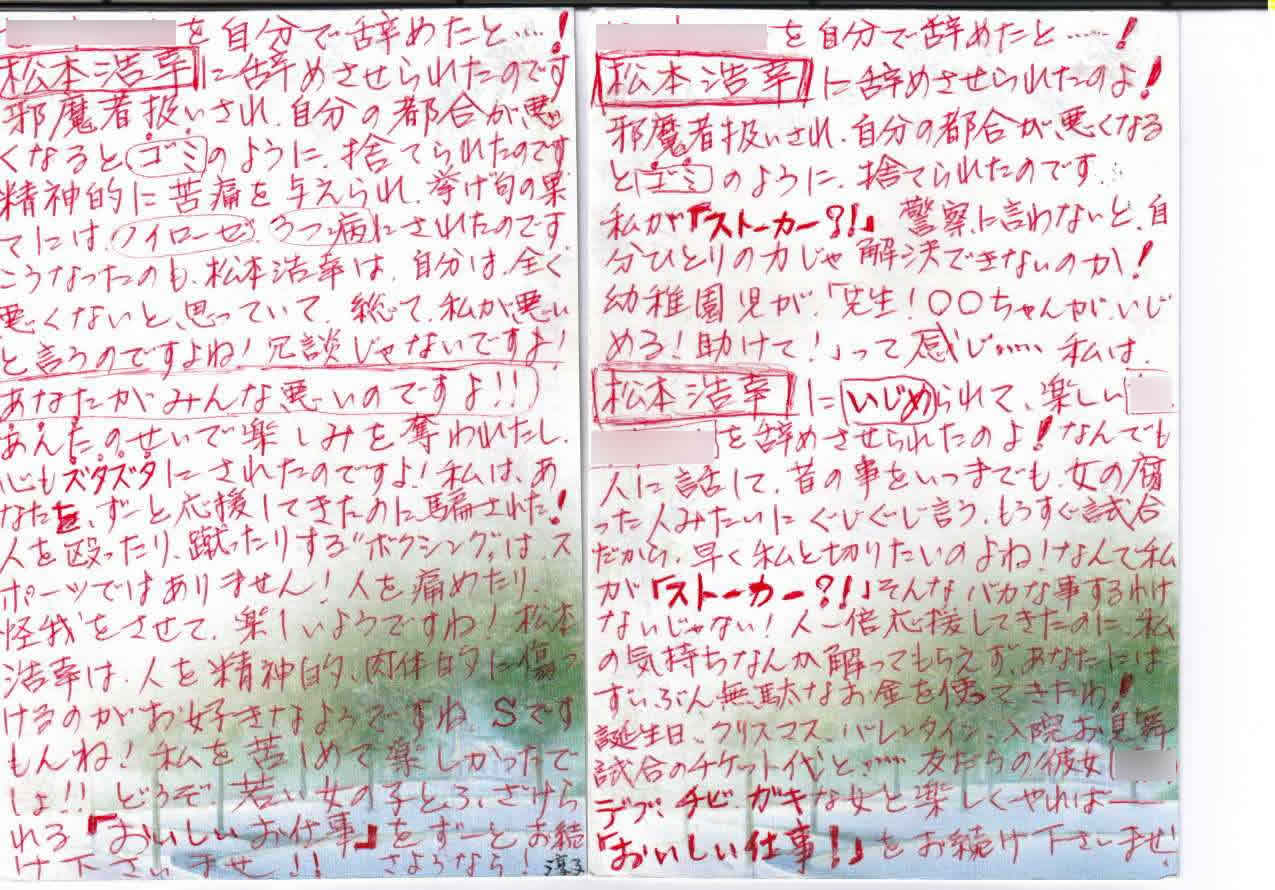 を自分で辞めたと……!
松本浩幸に辞めさせられたのです
邪魔者扱いされ、自分の都合が悪
くなるとゴミのように、捨てられたのです
精神的に苦痛を与えられ、挙げ句の果
てには、ノイローゼ、うつ病にされたのです
こうなったのも、松本浩幸は、自分は、全く
悪くないと、思っていて、総て、私が悪い
と言うのですよね!冗談じゃないですよ!
あなたがみんな悪いのですよ!!
あんたのせいで楽しみを奪われたし、
心もズタズタにされたのですよ!私は、あ
なたを、ずーと応援してきたのに騙された!
人を殴ったり、蹴ったりする"ボクシング"は、ス
ポーツではありません!人を痛めたり、
怪我をさせて、楽しいようですね!松本
浩幸は、人を精神的、肉体的に傷つ
けるのがお好きなようですね。Sです
もんね!私を苦しめて楽しかったで
しょ!!どうぞ若い女の子と、ふざけら
れる「おいしいお仕事」をずーとお続
け下さいませ!!さようなら!
を自分で辞めたと……!
松本浩幸に辞めさせられたのよ!
邪魔者扱いされ、自分の都合が、悪くなる
とゴミのように、捨てられたのです。
私が「ストーカー?!」警察に言わないと、自
分ひとりの力じゃ解決できないのか!
幼稚園児が、「先生!〇〇ちゃんが、いじ
める!助けて!」って感じ……私は、
松本浩幸にいじめられて、楽しい
を辞めさせられたのよ!なんでも
人に話して、昔の事をいつまでも、女の腐
った人みたいにぐじぐじ言う、もうすぐ試合
だから、早く私と切りたいのよね!なんで私
が「ストーカー?!」そんなバカな事するわけ
ないじゃない!人一倍応援してきたのに、私
の気持ちなんか解ってもらえず、あなたには
ずいぶん無駄なお金を使ってきたわ!
誕生日、クリスマス、バレンタイン、入院お見舞
試合のチケット代と……友だちの彼女
デブ、チビ、ガキな女と楽しくやれば――
「おいしい仕事!」をお続け下さいませ!